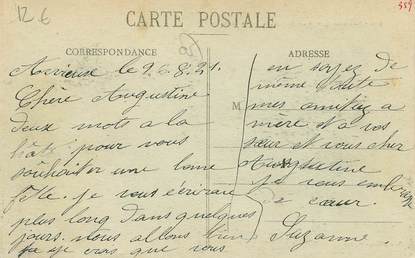 12.6
559
CARTE POSTALE
CORRESPONDANCE
ADRESSE
le 26.8.21.
Chère Augustine
deux mots a la
hâte pour vous
souhaiter une bonne
fête. je vous écrirai
plus long dans quelques
jours. nous allons bien
je crois que vous
en soyez de
même
M
mes amitiez a
mère et a vos
sœur et vous cher
Augustine
je vous embrasse
de cœur.
Suzanne.